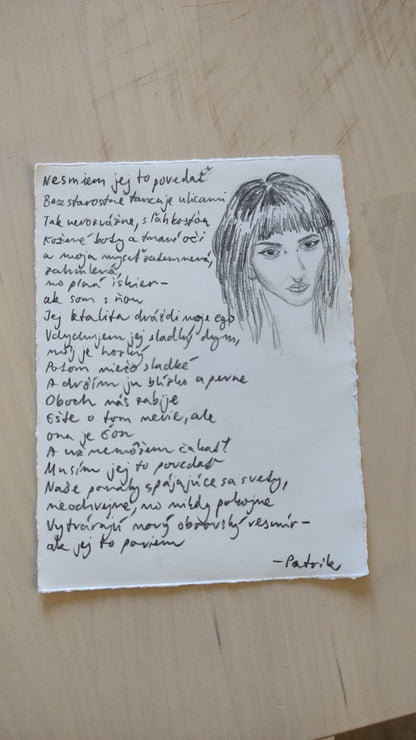 Nesmiem jej to povedať
Bezstarostne tancuje ulicami
Tak nerozvážne, s ľahkosťou
Kožené boty a tmavé oči
a moja myseľ zatemnená,
zahmlená,
no plná iskier –
ak som s ňou
Jej kvalita dráždi moje ego
Vdychujem jej sladký dym,
môj je horký
Potom niečo sladké
A držím ju blízko a pevne
Oboch nás zabije
Ešte o tom nevie, ale
ona je
A už nemôžem čakať!
Musím jej to povedať
Naše spájajúce sa svety,
neochvejne, no nikdy pokojne
Vytvárajú nový obrovský vesmír –
ak jej to poviem
– Patrik